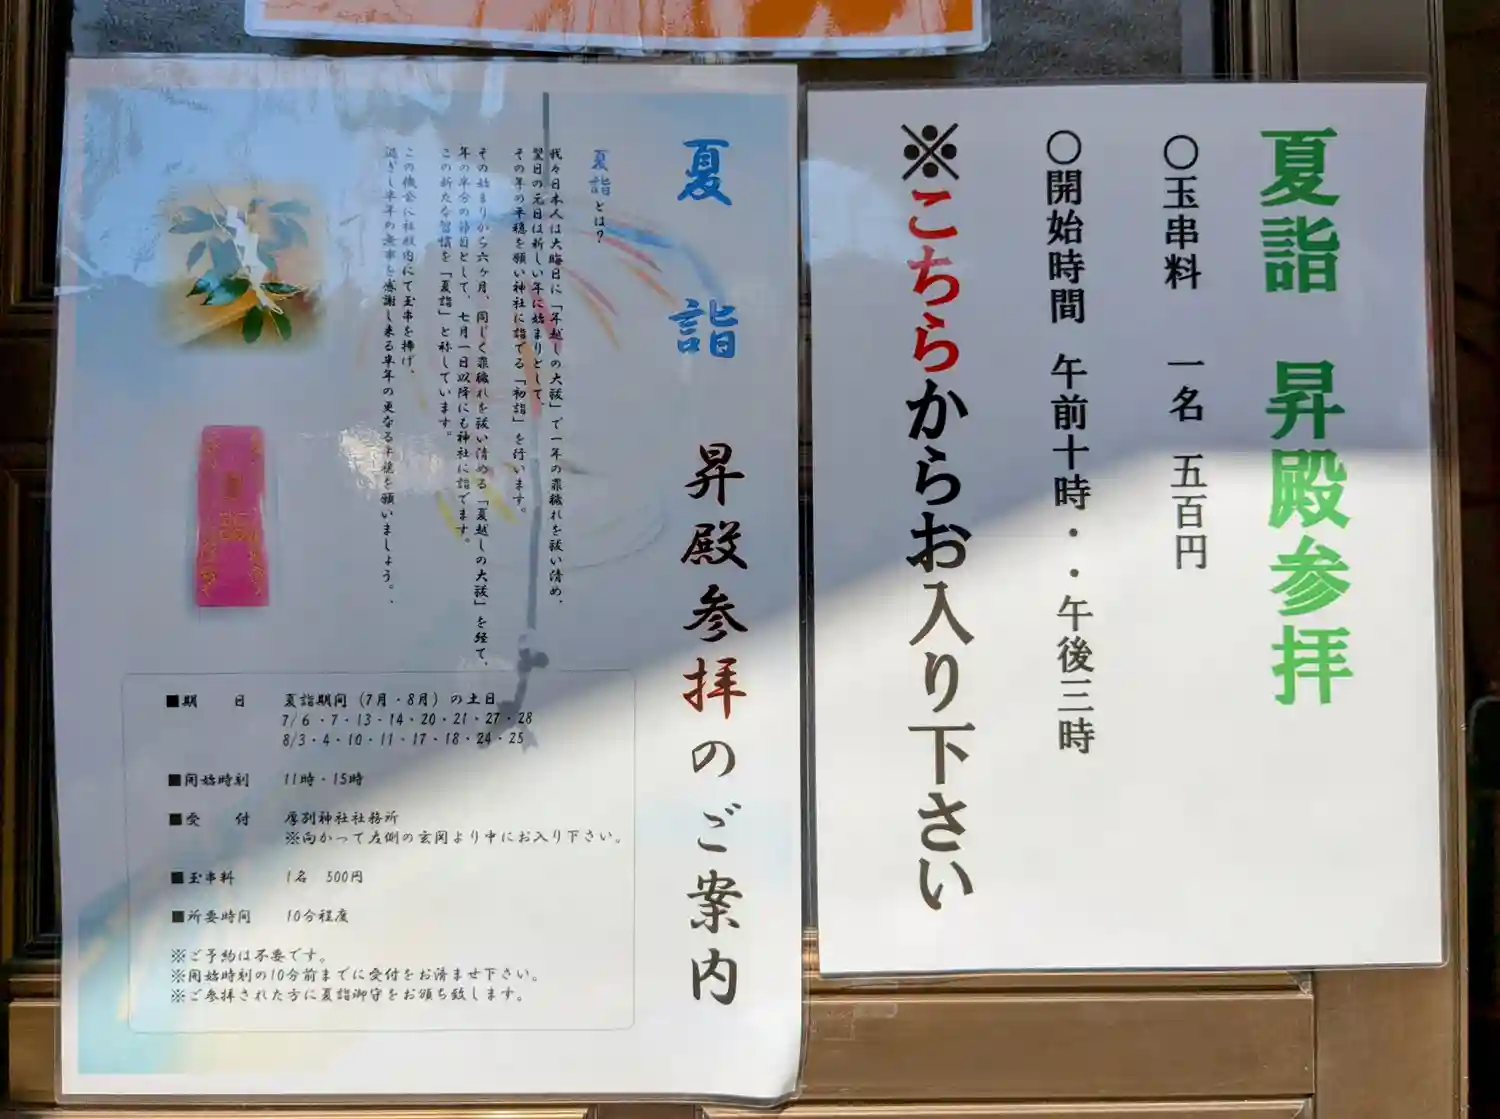 夏詣 昇殿参拝
○玉串料 一名 五百円
○開始時間 午前十時・・午後三時
※こちらからお入り下さい
夏詣 昇殿参拝のご案内
夏詣とは?
我々日本人は大晦日に「年越しの大祓」で一年の罪穢れを祓い清め、
翌日の元日は新しい年に始まりとして、
その年の平穏を願い神社に詣でる「初詣」を行います。
その始まりから六ヶ月、同じく罪穢れを祓い清める「夏越しの大祓」を経て、
年の半分の節目として、七月一日以降にも神社に詣でます。
この新たな習慣を「夏詣」と称しています。
この機会に社殿内にて玉串を捧げ、
過ぎし半年の無事を感謝し来る半年の更なる平穏を願いましょう。
■期 日 夏詣期間(7月・8月)の土日
7/6・7・13・14・20・21・27・28
8/3・4・10・11・17・18・24・25
■開始時刻 11時・15時
■受 付 厚別神社社務所
※向かって左側の玄関より中にお入り下さい。
■玉串料 1名 500円
■所要時間 10分程度
※ご予約は不要です。
※開始時刻の10分前までに受付をお済ませ下さい。
※ご参拝された方に夏詣御守をお頒ち致します。